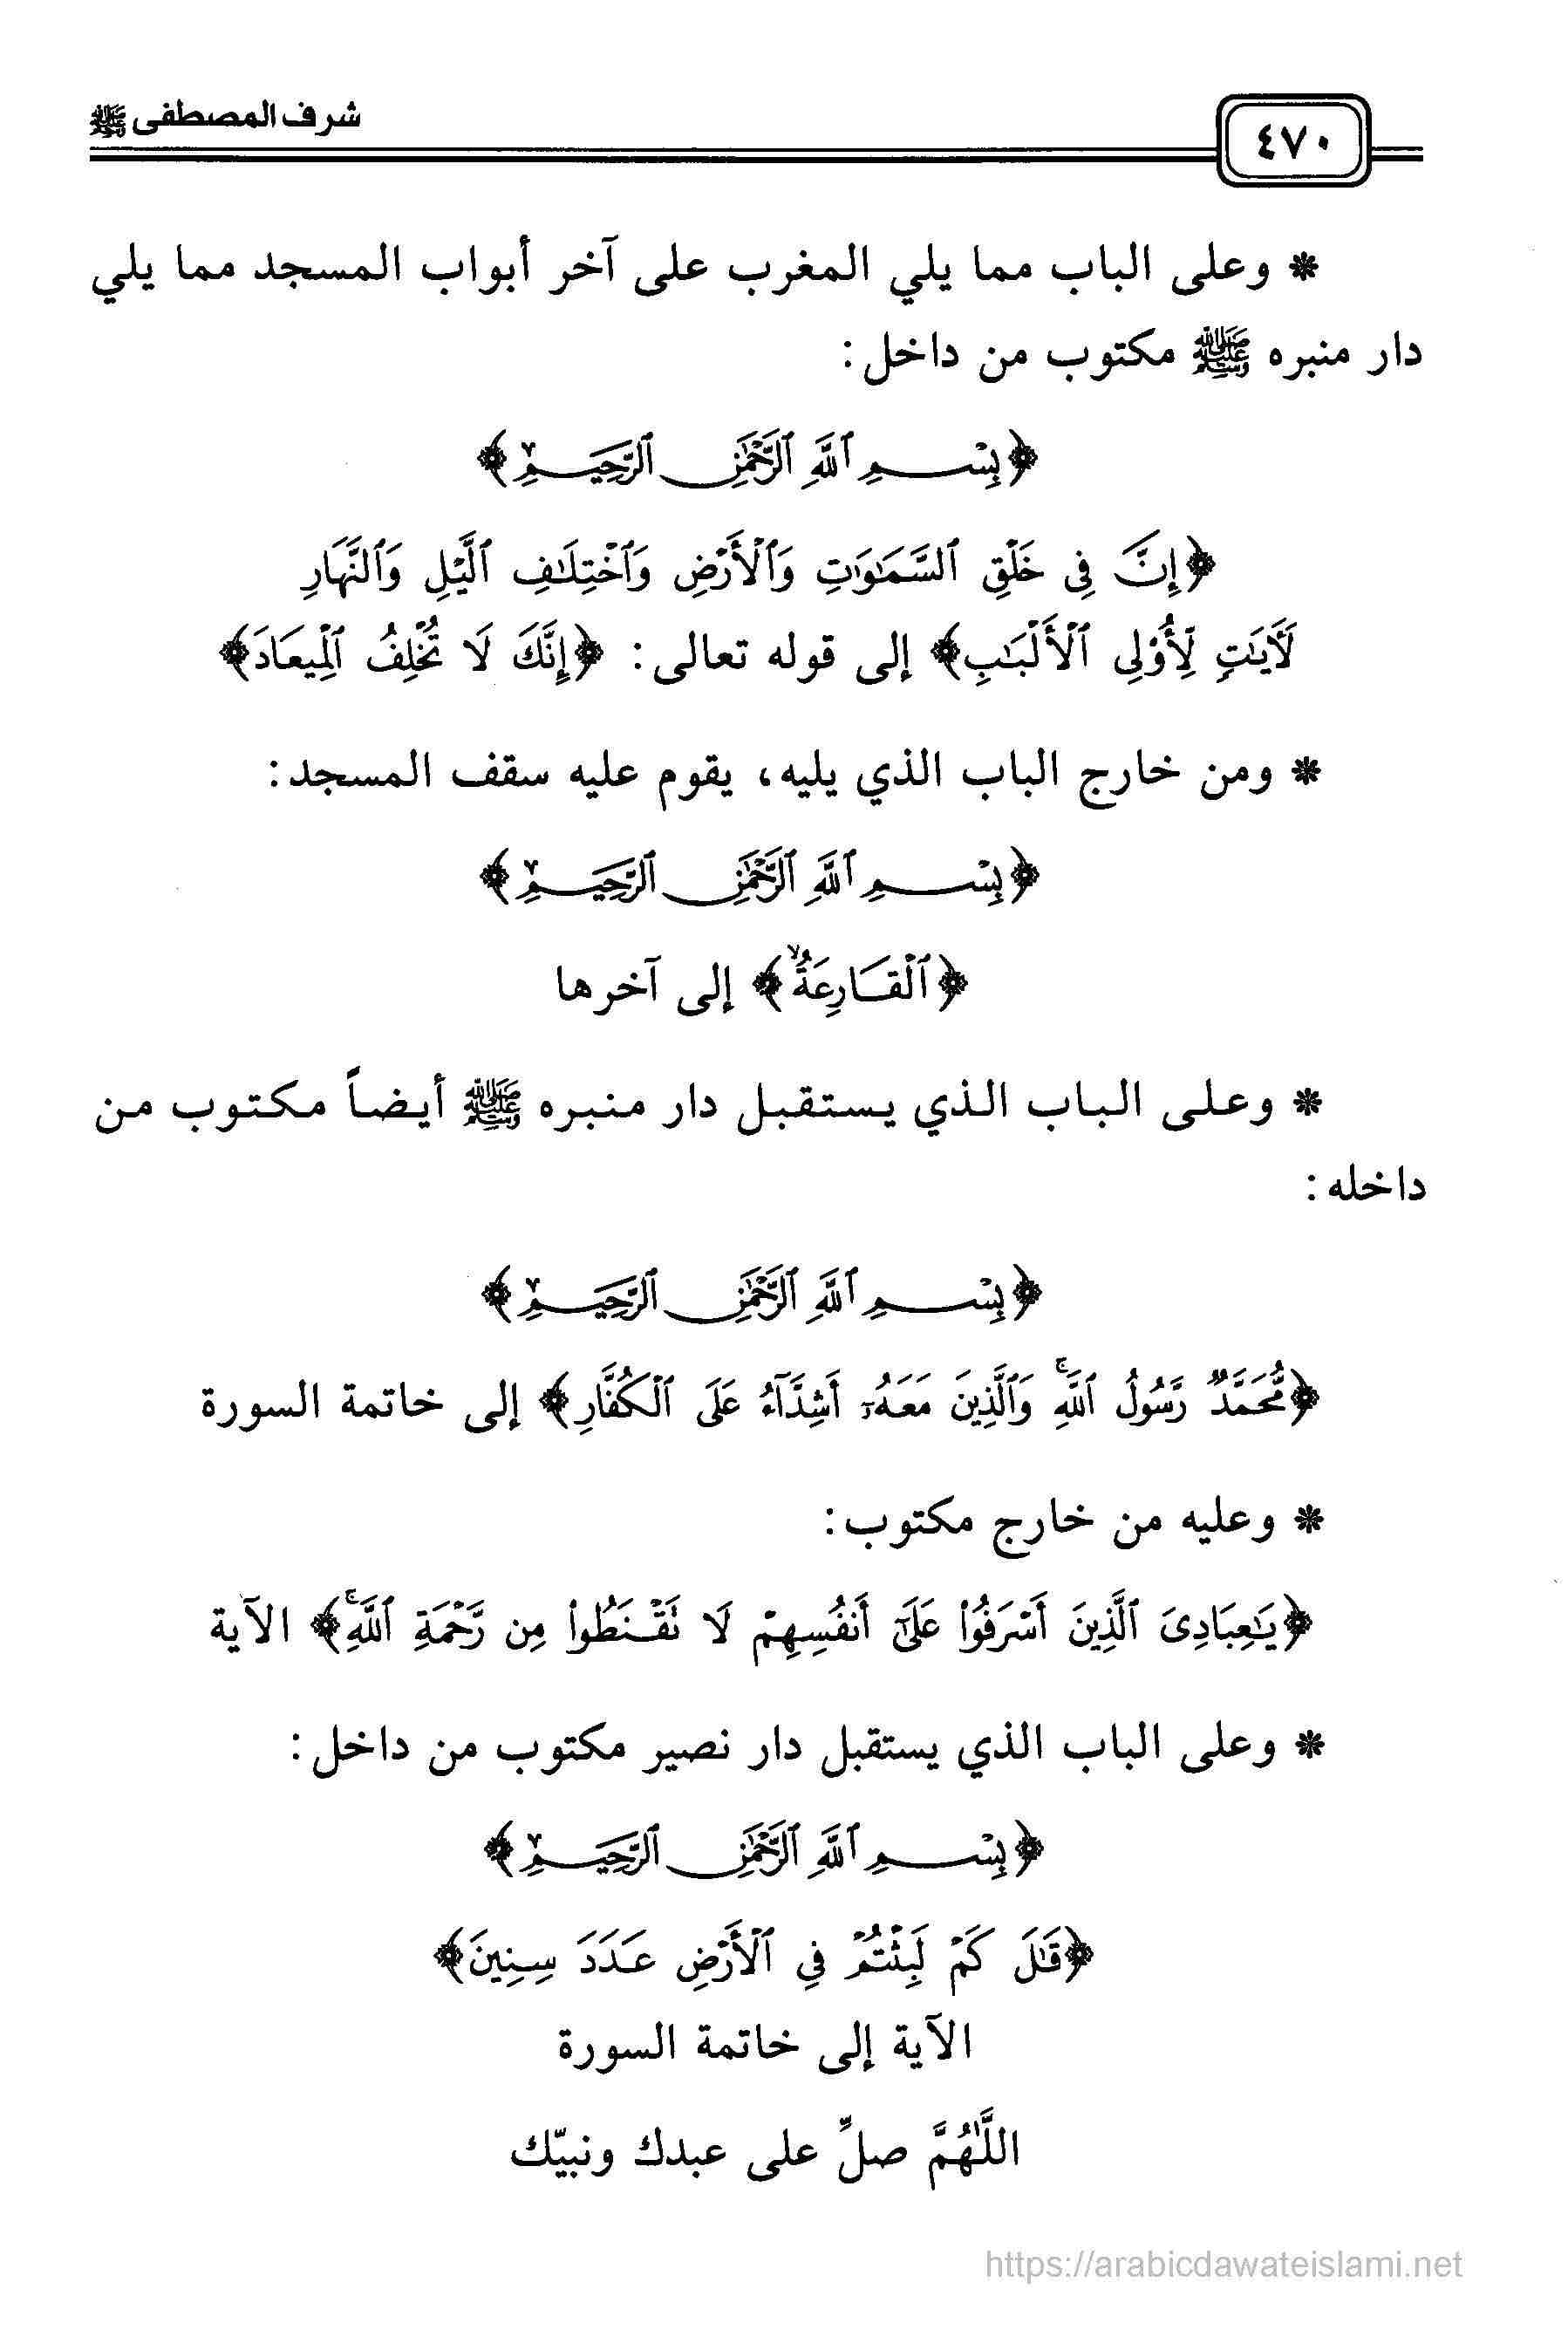 شرف المصطفى ﷺ
٤٧٠
* وعلى الباب مما يلي المغرب على آخر أبواب المسجد مما يلي
دار منبره ﷺ مكتوب من داخل:
﴿بِسْمِ ٱللَّهِ ٱلرَّحْمَٰنِ ٱلرَّحِيمِ﴾
﴿إِنَّ فِى خَلْقِ ٱلسَّمَٰوَٰتِ وَٱلْأَرْضِ وَٱخْتِلَٰفِ ٱلَّيْلِ وَٱلنَّهَارِ
لَـَٔايَٰتٍ لِّأُو۟لِى ٱلْأَلْبَٰبِ﴾ إلى قوله تعالى: ﴿إِنَّكَ لَا تُخْلِفُ ٱلْمِيعَادَ﴾
* ومن خارج الباب الذي يليه، يقوم عليه سقف المسجد:
﴿بِسْمِ ٱللَّهِ ٱلرَّحْمَٰنِ ٱلرَّحِيمِ﴾
﴿ٱلْقَارِعَةُ ۙ﴾ إلى آخرها
* وعلى الباب الذي يستقبل دار منبره ﷺ أيضاً مكتوب من
داخله:
﴿بِسْمِ ٱللَّهِ ٱلرَّحْمَٰنِ ٱلرَّحِيمِ﴾
﴿مُّحَمَّدٌ رَّسُولُ ٱللَّهِ ۚ وَٱلَّذِينَ مَعَهُۥٓ أَشِدَّآءُ عَلَى ٱلْكُفَّارِ﴾ إلى خاتمة السورة
* وعليه من خارج مكتوب:
﴿يَٰعِبَادِىَ ٱلَّذِينَ أَسْرَفُوا۟ عَلَىٰٓ أَنفُسِهِمْ لَا تَقْنَطُوا۟ مِن رَّحْمَةِ ٱللَّهِ ۚ﴾ الآية
* وعلى الباب الذي يستقبل دار نصير مكتوب من داخل:
﴿بِسْمِ ٱللَّهِ ٱلرَّحْمَٰنِ ٱلرَّحِيمِ﴾
﴿قَٰلَ كَمْ لَبِثْتُمْ فِى ٱلْأَرْضِ عَدَدَ سِنِينَ﴾
الآية إلى خاتمة السورة
اللَّهُمَّ صلِّ على عبدك ونبيّك
https://arabicdawateislami.net